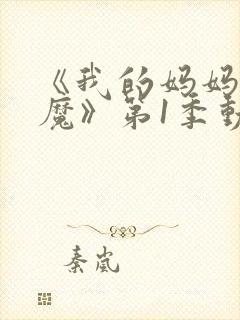 《我的妈妈
魔》第1季動
秦岚